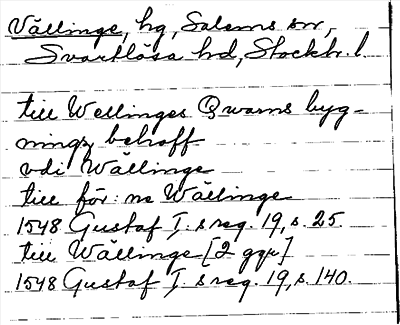 Vällinge, hg, Salems sn,
Svartlösa hd, Stockh. l.
till Wellinges Qwarns byg-
nings behoff
vdi Wällinge
till för:ne Wällinge
1548 Gustaf I.s reg. 19, s. 25.
till Wällinge [2 ggr]
1548 Gustaf I.s reg. 19, s. 140.